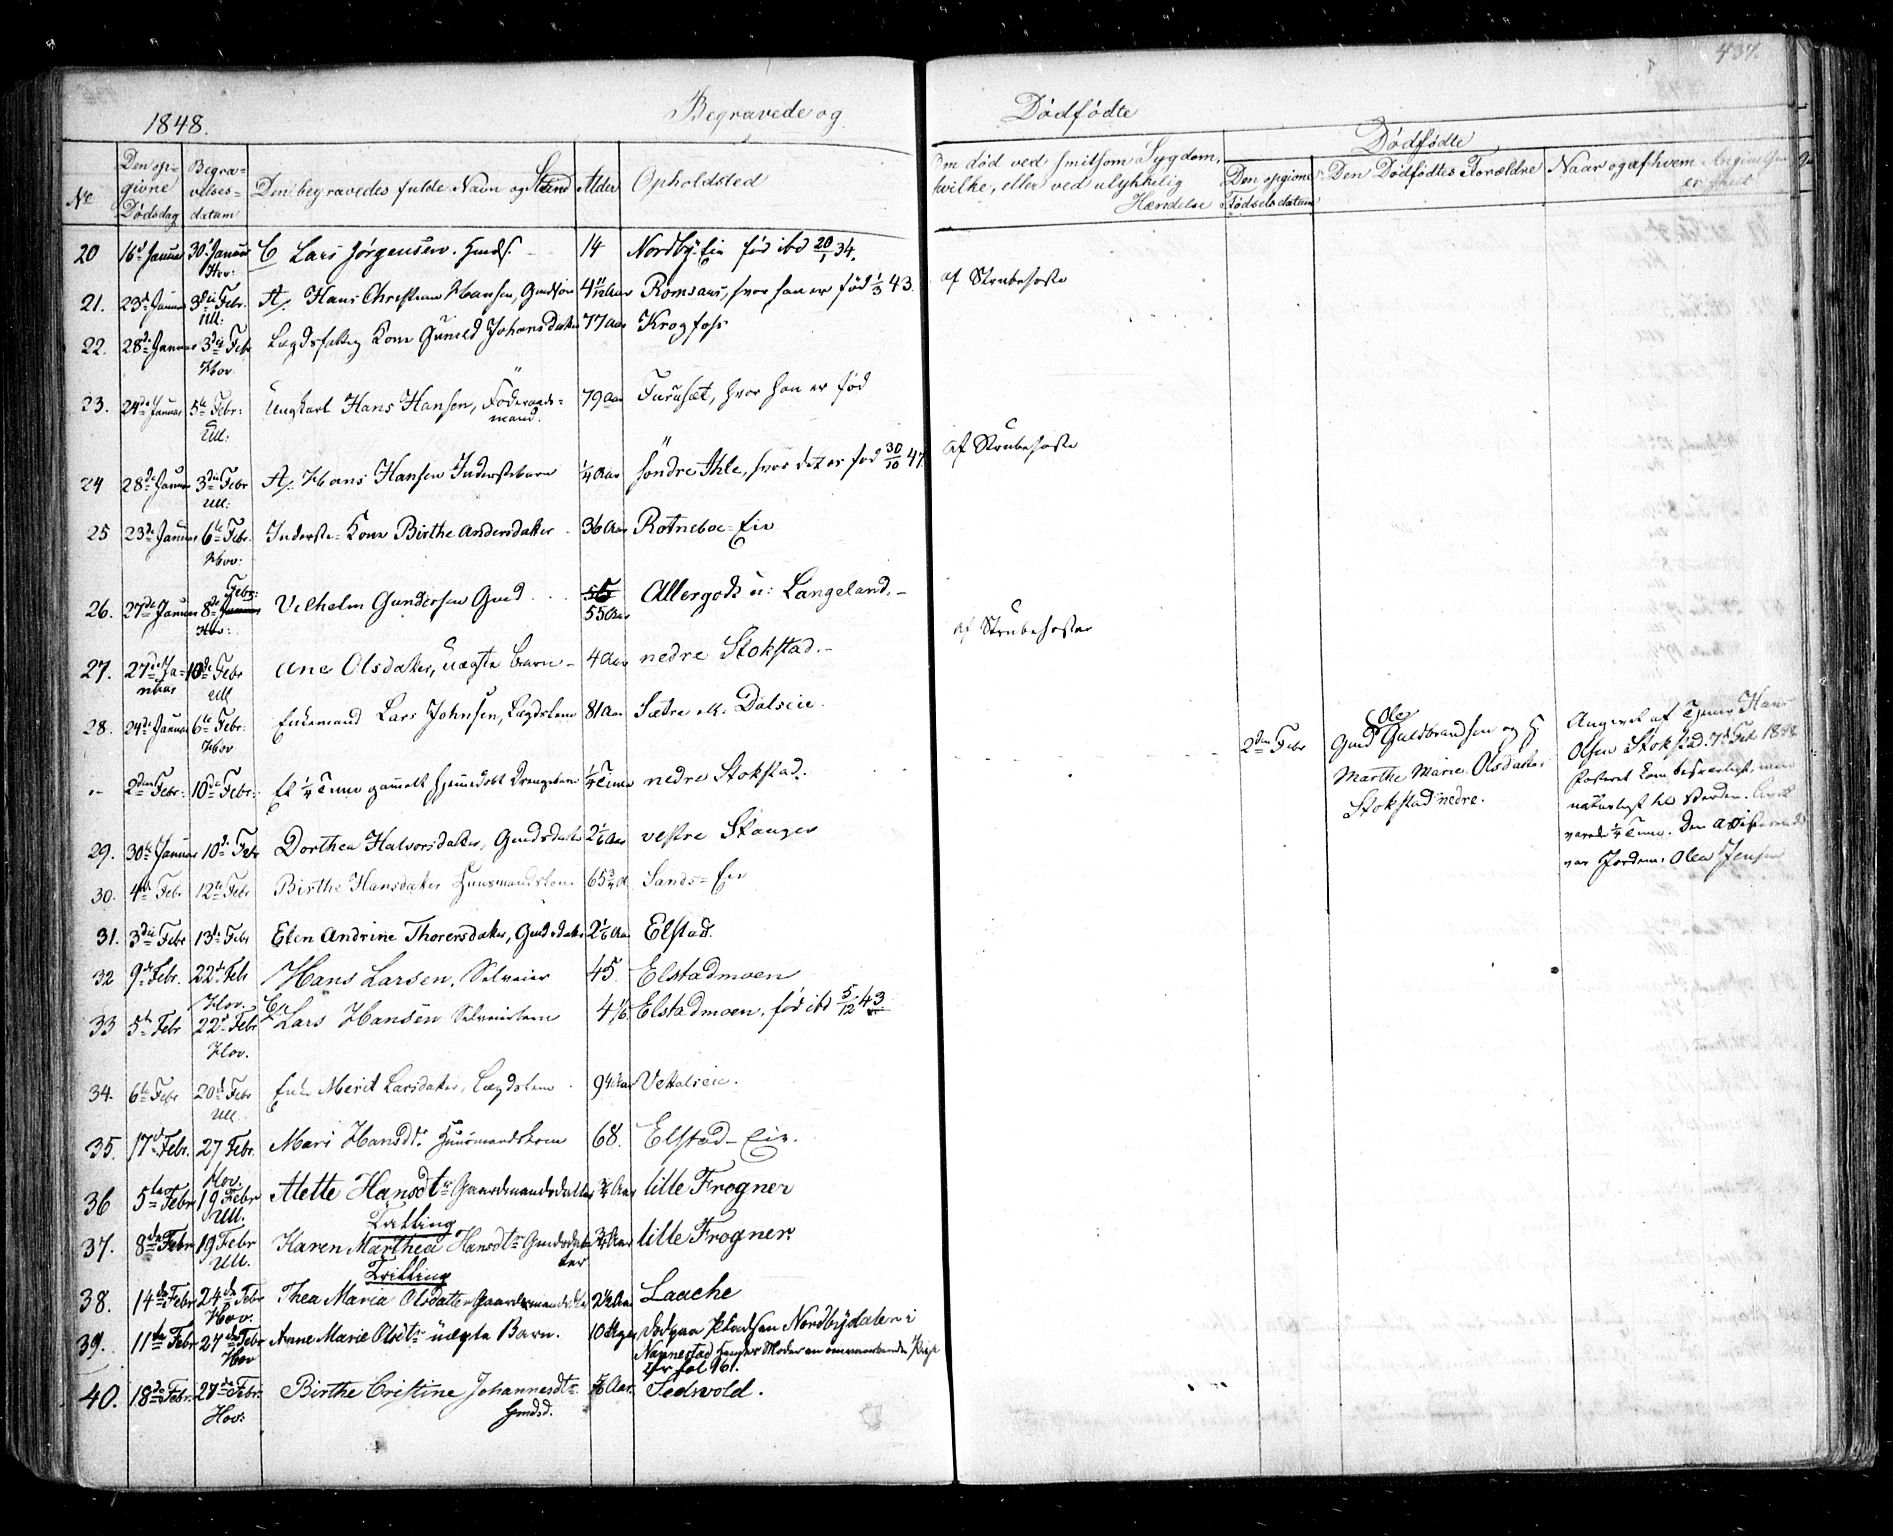 437.
1848. Begravede og Dødfødte
No Den opgivne Dødsdag Begravelsesdatum Den begravedes fulde Navn og Stand Alder Opholdsted
Om død ved smitsom Sygdom, hvilke, eller ved ulykkelig Hændelse
Dødfødte
Den opgivne Fødselsdatum Den Dødfødtes Forældre Naar og af hvem Angivelsen er skeet
20 16d Januar 30 Januar Hov: C Lars Jørgensen. Gmds. 14 Nordby-Eie fød ibd 20/1 34.
21. 23d Januar 3die Febr. Ull: A/. Hans Christian Hansen, Gmdsøn 4 11/12 Aar Romsaas, hvor han er fød 1/3 43. af Strubehoste
22. 28de Januar 3die Febr Hov. Lægdslem Kone Gunild Johansdatter 77 Aar Krogfoss
23. 24de Januar 5te Febr: Ull: Ungkarl Hans Hansen, Föderaads=
mand. 79 Aar Furuset, hvor han er fød
24 28de Januar 3die Febr Ull: A/. Hans Hansen Inderstebarn 1/4 Aar söndre Ihle, hvor det er fød 30/10 47. af Strubehoste
25 23de Januar 6te Febr. Hov: Inderste-Kone Birthe Andersdatter 36 Aar Rotneboe-Eie
26. 27de Januar 8de Febr: Hov: Vilhelm Gundersen Gmd 55 Aar Allergodt u: Langeland.
27. 27de Januar 10de Febr Ull Ane Olsdatter, uægte barn 4 Aar nedre Stokstad. af Strubehoste
28. 24de Januar 6te Febr. Hov Enkemand Lars Johnsen, Lægdslem 81 Aar Sætre Dalseie.
2den Febr: 10de Febr: Et 1/4 Time gammelt hjemmedøbt Drengebarn 1/4 Time nedre Stokstad.
2den Febr
Ole
Gmd Guldbrandsen og H.
Marthe Marie Olsdatter
Stokstad nedre.
Angivet af Tjener Hans
Olsen Stokstad. 7d Feb 1848
Fosteret kom besværligt, men
naturligt til Verden. Livet
varede 1/4 Time. Den assisterende
var Jordem: Olea Jensen
29. 30te Januar 10de Febr Dorthea Halvorsdatter, Gmdsdatter 2 1/6 Aar vestre Stanger
30. 4de Febr 12te Febr Birthe Hansdatter Huusmandskone 65 3/4 A. Sands-Eie
31. 3die Febr 13de Febr Elen Andrine Thorersdatter, Gmdsdatter 2 1/6 Aar Elstad.
32 9de Febr. 22de Febr Hov. Hans Larsen, Selveier 45. Elstadmoen
33 5te Febr 22d Febr Hov. C/. Lars Hansen Selveierbarn 4 1/6. Elstadmoen, fød ibd 5/12 43
34. 6te Febr 20d Febr Ull. Enke Merit Larsdatter, Lægdslem 94 Aar Vetalseie.
35. 17d Febr. 27 Febr. Hov. Mari Hansdtr. Huusmandskone 68. Elstad-Eie.
36 5te Febr 19 Febr Ull. Alette Hansdtr Gaardmandsdatter 3/4 Aar lille Frogner
Tvilling
37. 8de Febr 19 Febr Ull. Karen Marthea Hansdtr Gmdsdatter 3/4 Aar lille Frogner
Tvilling
38. 14de Febr 24de Febr Hov. Thea Maria Olsdatter Gaardmandsdtr 2 1/2 Aar Laache
39. 11te Febr 27de Febr Hov Anne Marie Olsdtr uægte Barn. 10 Uger Nordbydalen i
Nannestad hendes Moder en omvankende Pige
cfr fol 161.
40. 18de Febr. 27de Febr. Hov: Birthe Cristine Johannesdtr Gmdsd. Aar. Tedsvold.